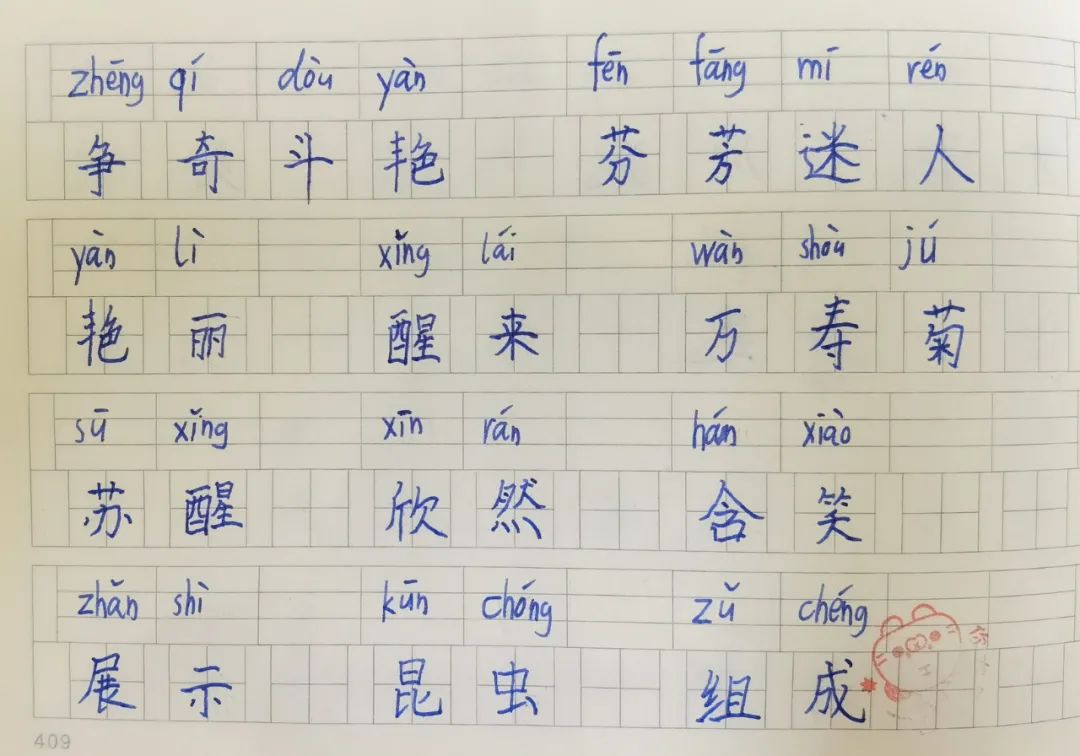 zhēng qí dòu yàn fēn fāng mí rén
争奇斗艳 芬芳迷人
yàn lì xǐng lái wàn shòu jú
艳丽 醒来 万寿菊
sū xǐng xīn rán hán xiào
苏醒 欣然 含笑
zhǎn shì kūn chóng zǔ chéng
展示 昆虫 组成
409